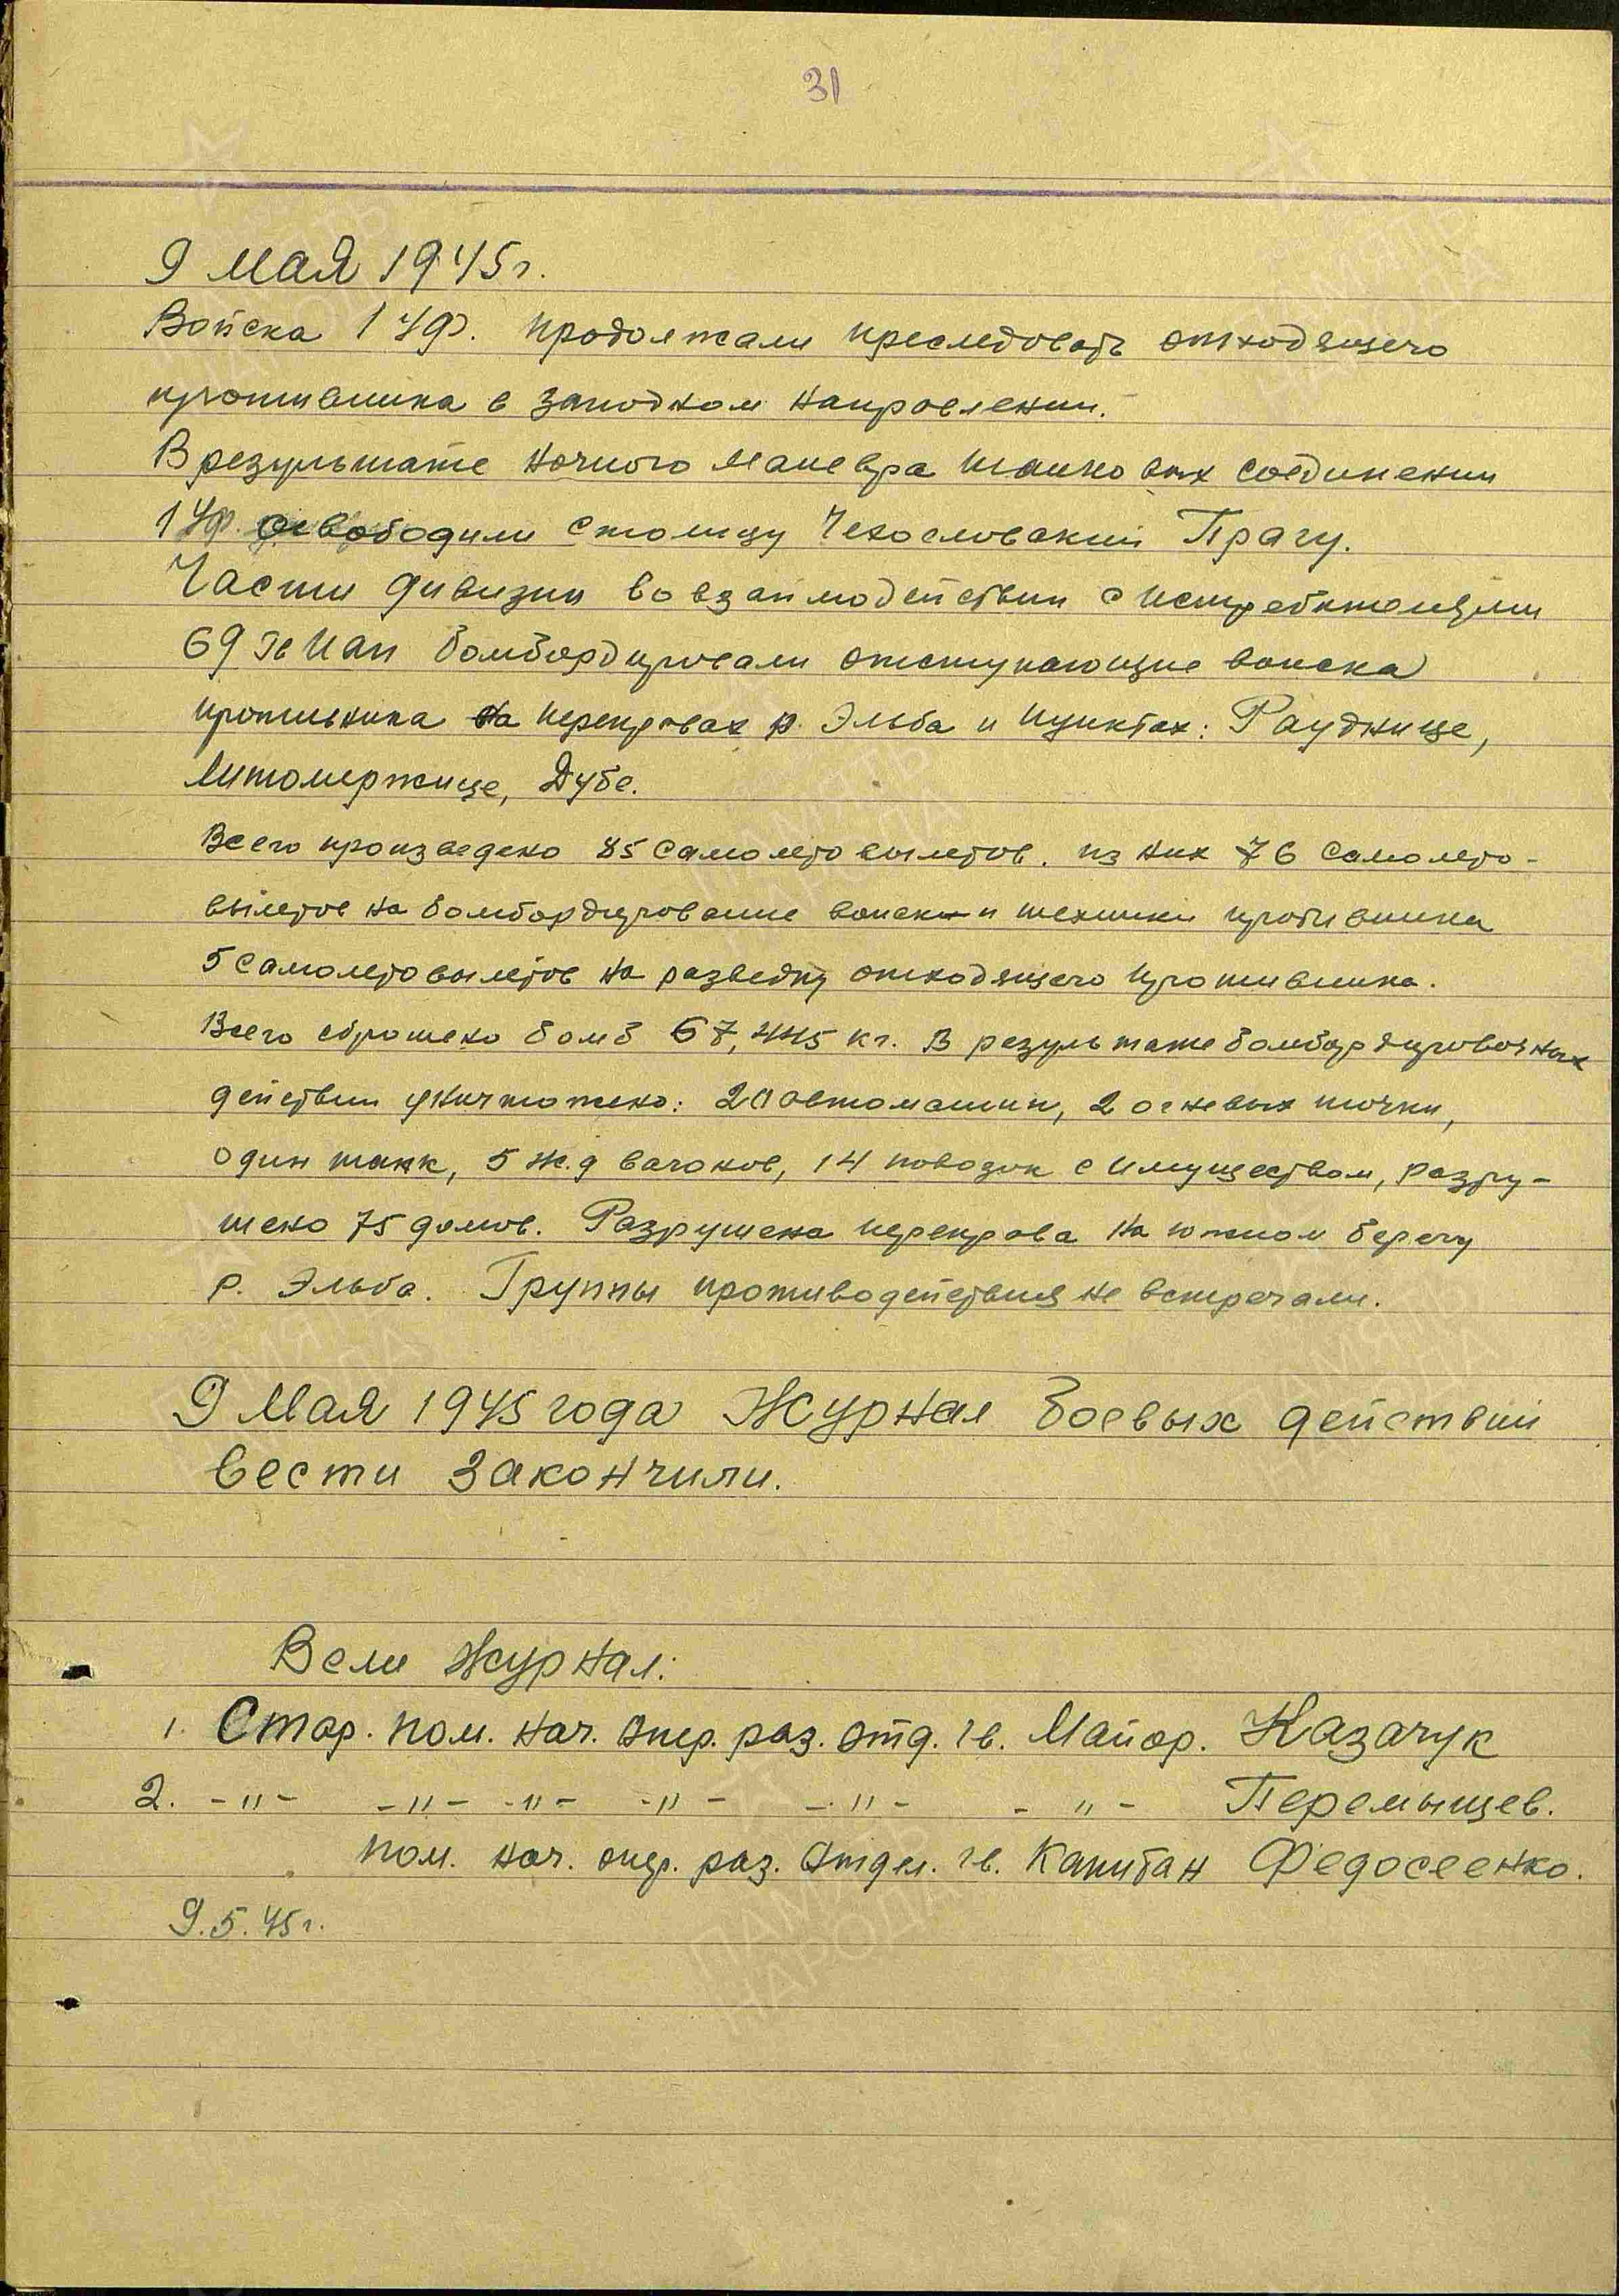 31
9 мая 1945г.
Войска 1 УФ. продолжали преследовать отходящего
противника в западном направлении.
В результате ночного маневра танковых соединений
1 УФ. освободили столицу Чехословакии Прагу.
Части дивизии во взаимодействии с истребителями
69 Гв ИАП бомбардировали отступающие войска
противника на переправах р. Эльба и пунктах: Рауднице,
Литомержице, Дубе.
Всего произведено 85 самолетовылетов. из них 76 самолето-
вылетов на бомбардирование войск и техники противника
5 самолетовылетов на разведку отходящего противника.
Всего сброшено бомб 67,445 кг. В результате бомбардировочных
действий уничтожено: 20 автомашин, 2 огневых точки,
один танк, 5 ж.д вагонов, 14 повозок с имуществом, разру-
шено 75 домов. Разрушена переправа на южном берегу
р. Эльба. Группы противодействия не встречали.
9 Мая 1945 года Журнал боевых действий
вести закончили.
Вели журнал:
1. Стар. пом. нач. опер. раз. отд. гв. Майор. Казачук
2. -"- -"- -"- -"- -"- -"- Перемыщев.
пом. нач. опер. раз. Отдел. гв. Капитан Федосеенко.
9.5.45г.
ПАМЯТЬ
НАРОДА